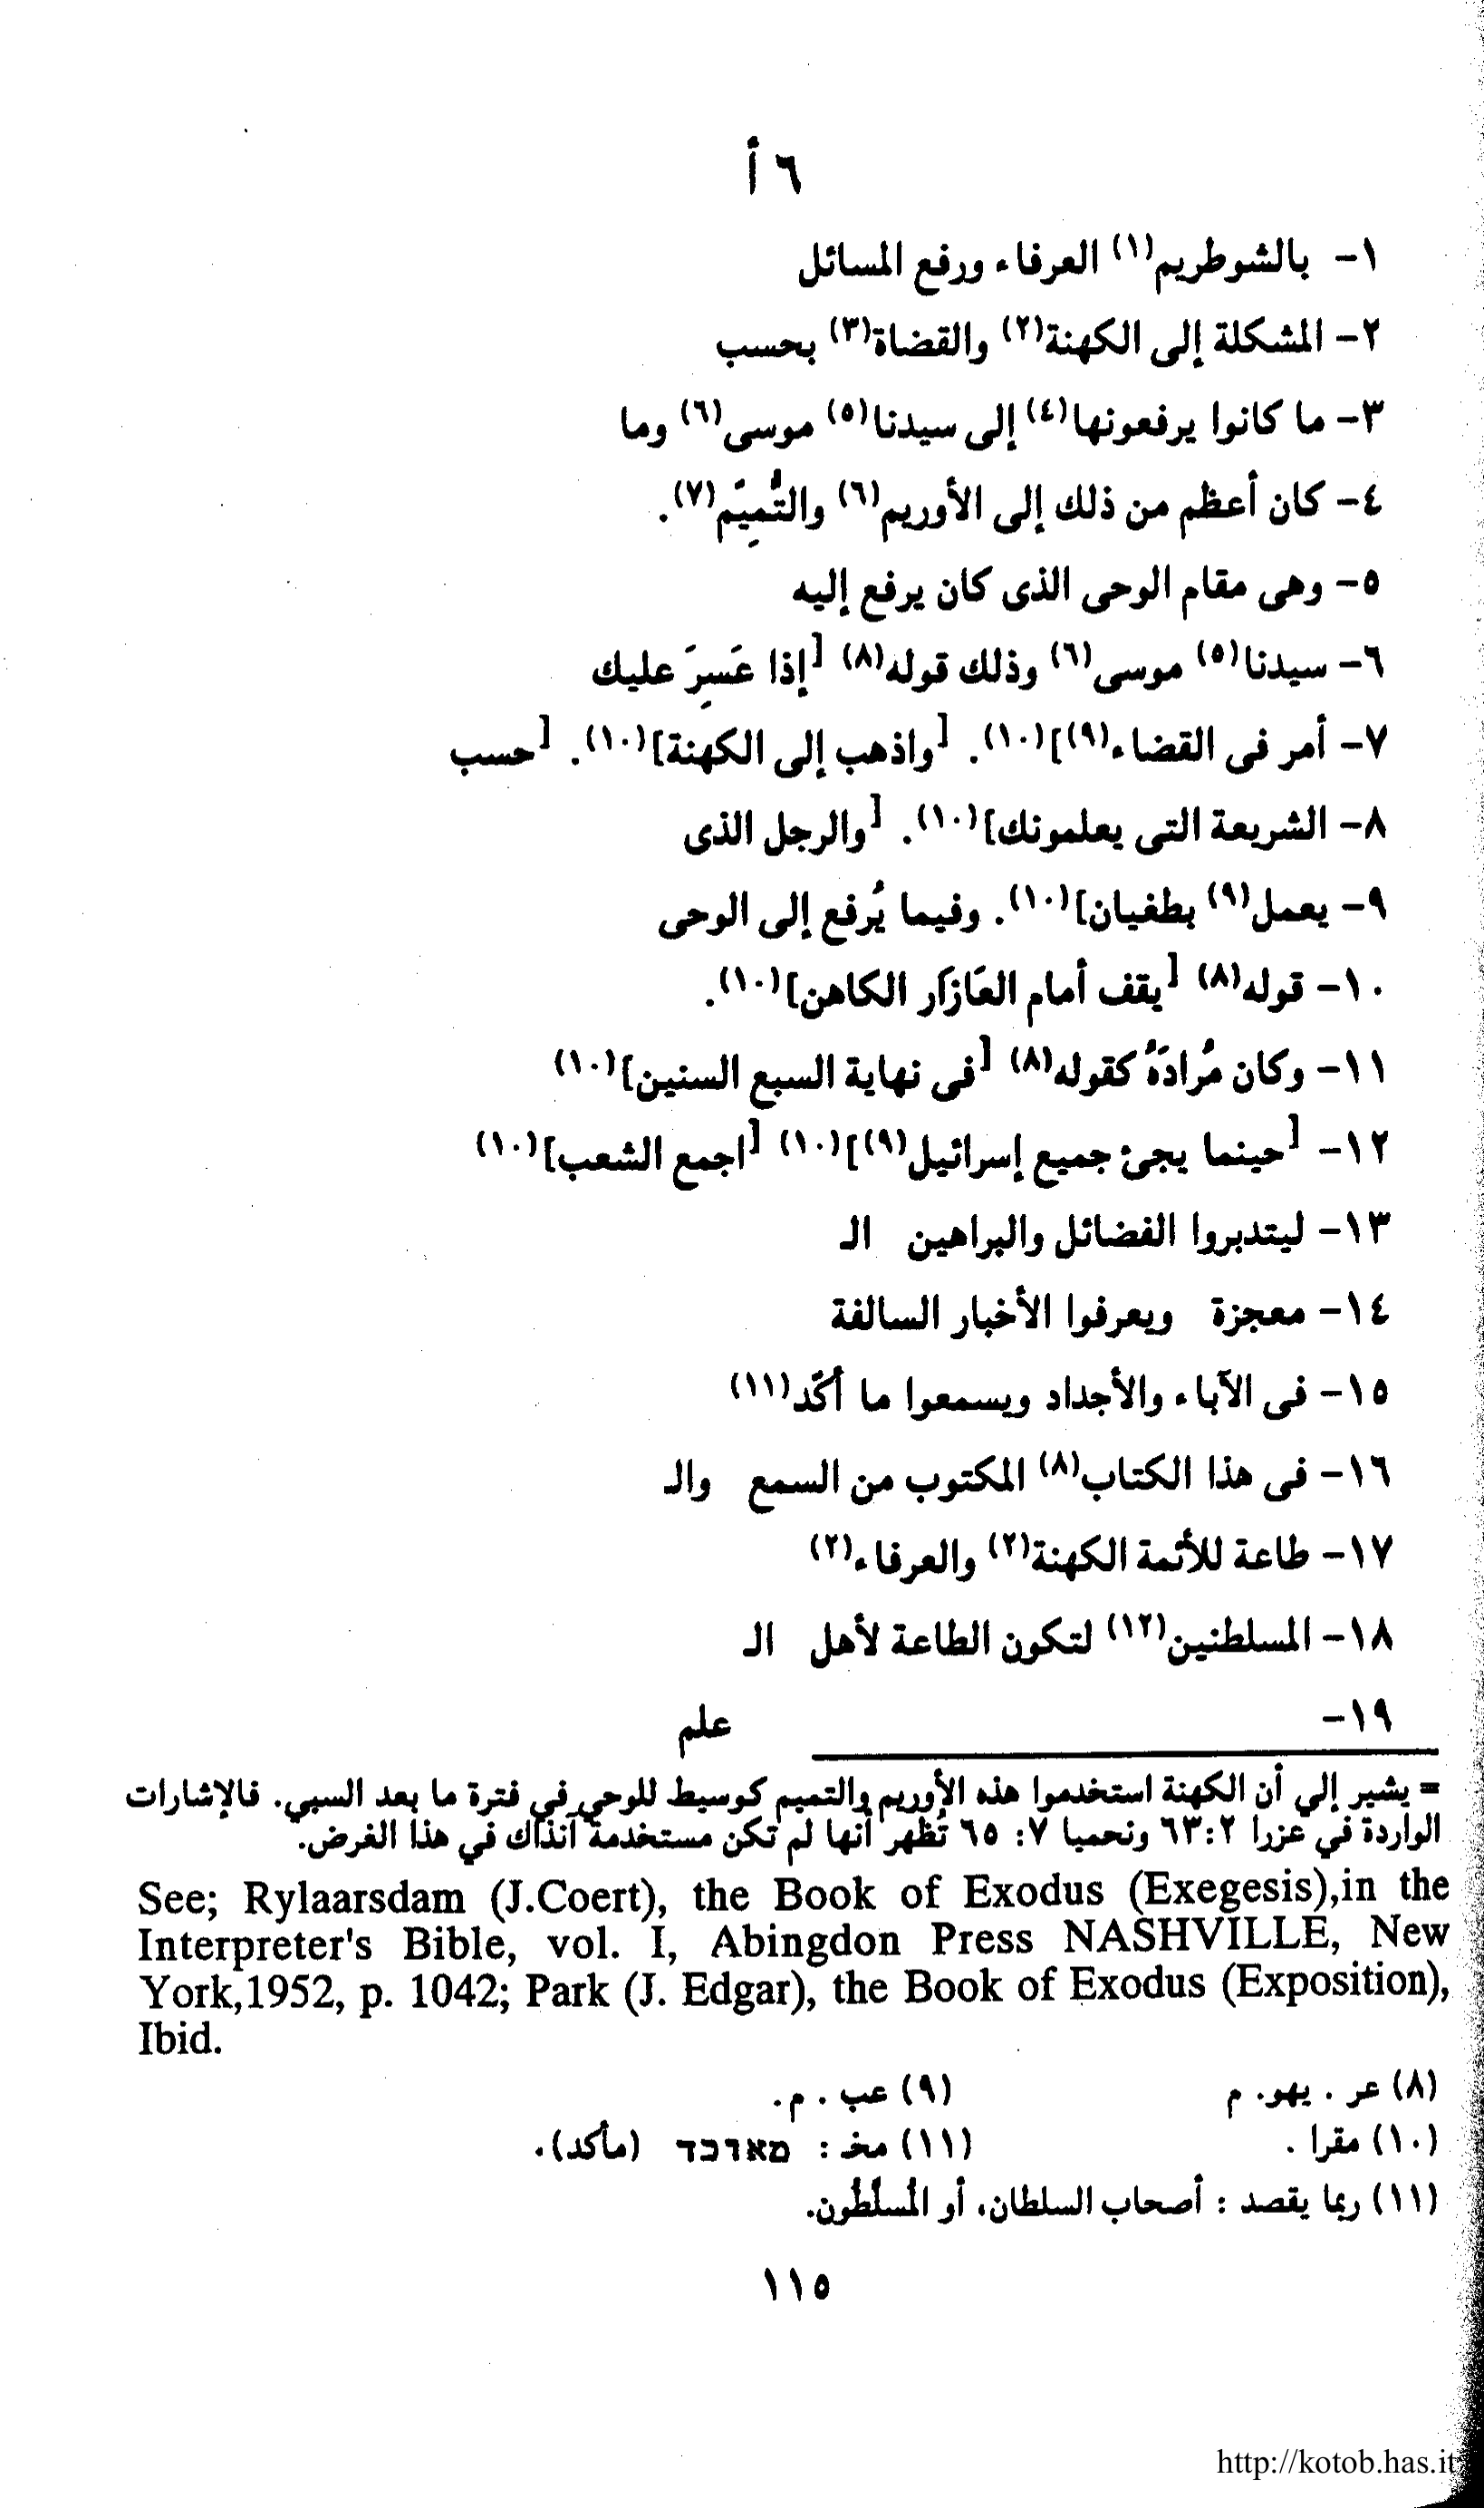 ٦ أ
١- بالشوطريم(١) العرفاء ورفع المسائل
٢- المشكلة إلى الكهنة(٢) والقضاة(٣) بحسب
٣- ما كانوا يرفعونها(٤) إلى سيدنا(٥) موسى(٦) وما
٤- كان أعظم من ذلك إلى الأوريم(٦) والتُّمِيَم(٧).
٥- وهى مقام الوحى الذى كان يرفع إليه
٦- سيدنا(٥) موسى(٦) وذلك قوله(٨) [إذا عَسِرَ عليك
٧- أمر فى القضاء(٩)](١٠). [واذهب إلى الكهنة](١٠). [حسب
٨- الشريعة التى يعلمونك](١٠). [والرجل الذى
٩- يعمل(٩) بطغيان](١٠). وفيما يُرفع إلى الوحى
١٠- قوله(٨) [يقف أمام العَازَار الكاهن](١٠).
١١- وكان مُرادَهُ كقوله(٨) [فى نهاية السبع السنين](١٠)
١٢- [حينما يجئ جميع إسرائيل(٩)](١٠) [اجمع الشعب](١٠)
١٣- ليتدبروا الفضائل والبراهين الـ
١٤- معجزة ويعرفوا الأخبار السالفة
١٥- فى الآباء والأجداد ويسمعوا ما أكّد(١١)
١٦- فى هذا الكتاب(٨) المكتوب من السمع والـ
١٧- طاعة للأئمة الكهنة(٢) والعرفاء(٢)
١٨- المسلطنين(١٢) لتكون الطاعة لأهل الـ
١٩- علم
= يشير إلي أن الكهنة استخدموا هذه الأوريم والتميم كوسيط للوحي في فترة ما بعد السبي. فالإشارات
الواردة في عزرا ٢:‏٦٣ ونحميا ٧: ٦٥ تُظهر أنها لم تكن مستخدمة آنذاك في هذا الغرض.
See; Rylaarsdam (J.Coert), the Book of Exodus (Exegesis),in the
Interpreter's Bible, vol. I, Abingdon Press NASHVILLE, New
York,1952, p. 1042; Park (J. Edgar), the Book of Exodus (Exposition),
Ibid.
(٨) عر . يهو. م (٩) عب . م.
(١٠) مقرا . (١١) مخـ : מאוכד (مأكد).
(١١) ربما يقصد : أصحاب السلطان، أو المُسلَّطُون.
١١٥
http://kotob.has.it